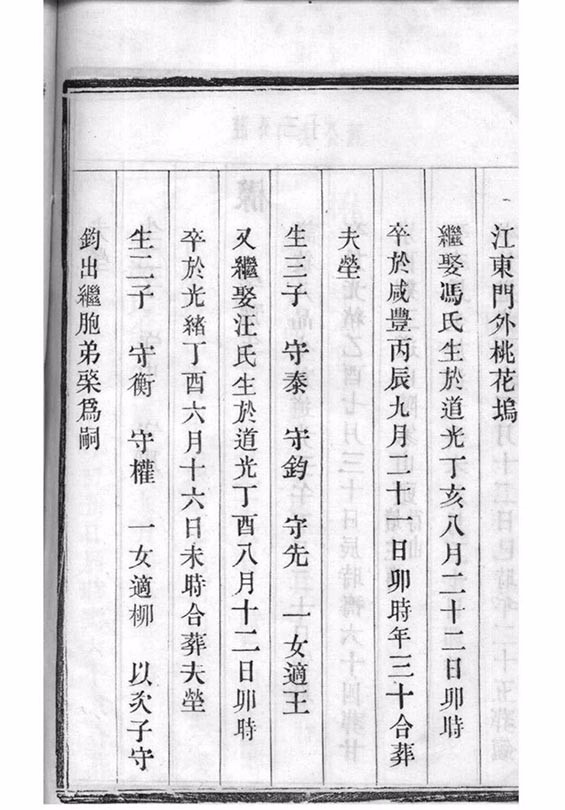 江東門外桃花塢
繼娶馮氏生於道光丁亥八月二十二日卯時
卒於咸豐丙辰九月二十一日卯時年三十合葬
夫塋
生三子 守泰 守鈞 守先 一女適王
又繼娶汪氏生於道光丁酉八月十二日卯時
卒於光緒丁酉六月十六日未時合葬夫塋
生二子 守衡 守權 一女適柳 以次子守
鈞出繼胞弟棨爲嗣